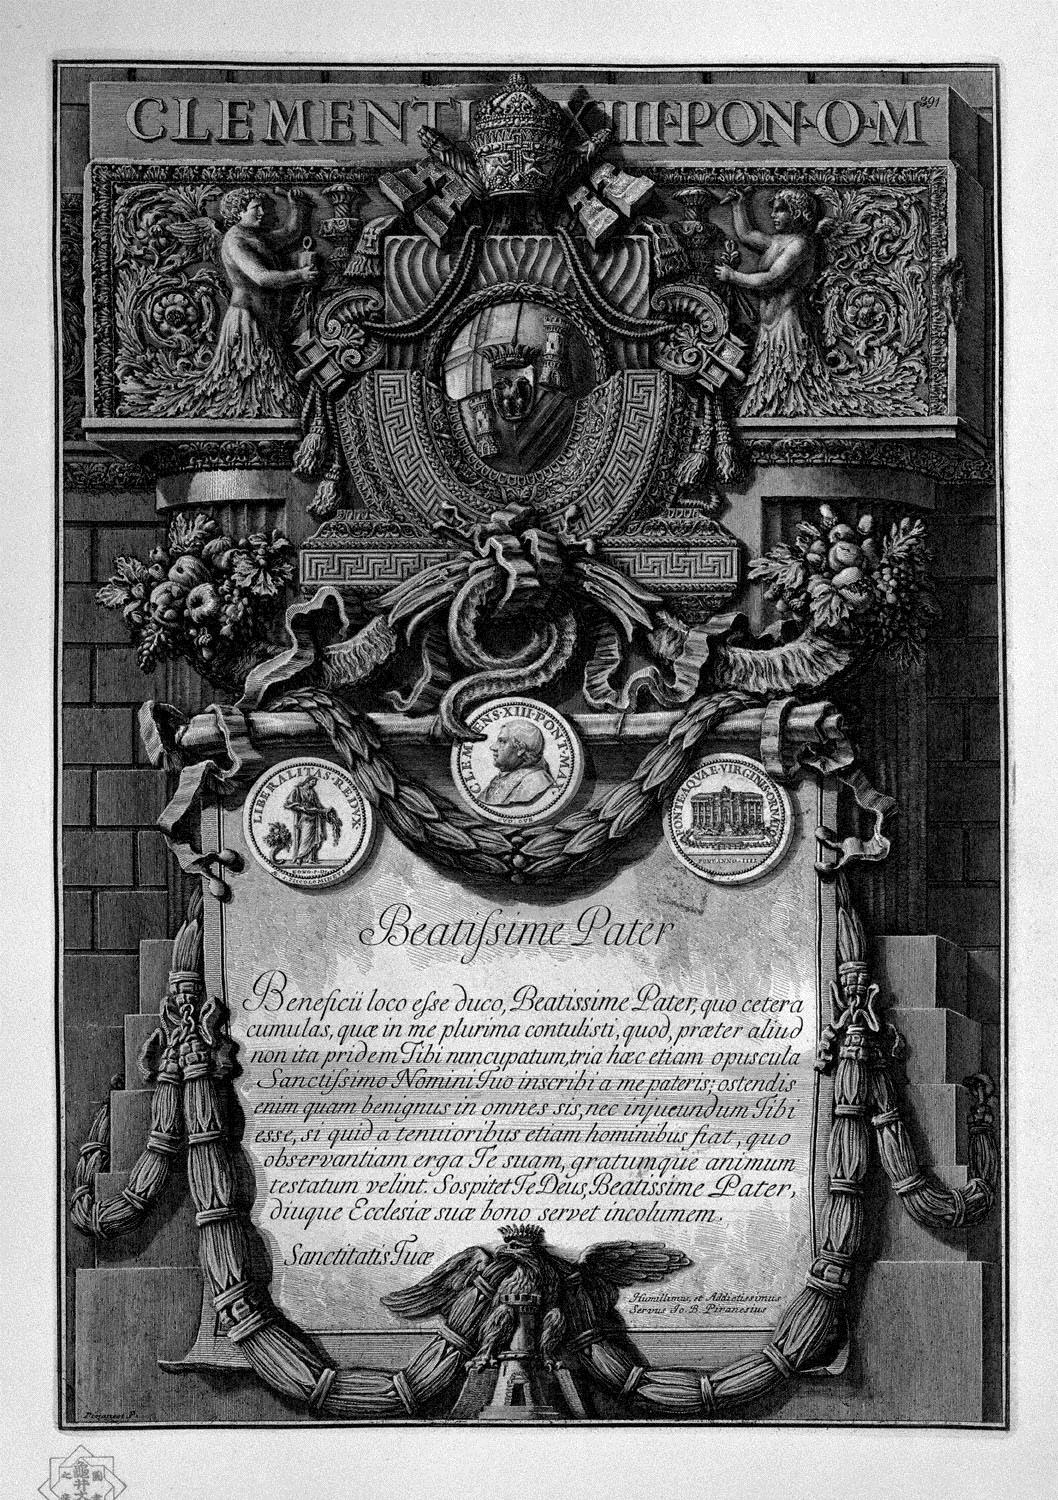 CLEMENTI XIII·PON·O·M
391
CLEMENS·XIII·PONT·MAX
LIBERALITAS·REDUX·
FONTE AQVAE·VIRGINIS·ORNATO
PONT·ANNO·IIII
Beatiſsime Pater
Beneficii loco eſse duco, Beatissime Pater, quo cetera
cumulas, quæ in me plurima contulisti, quod, præter aliud
non ita pridem Tibi nuncupatum, tria hæc etiam opuscula
Sanctiſsimo Nomini Tuo inscribi a me pateris; ostendis
enim quam benignus in omnes sis, nec injucundum Tibi
esse, si quid a tenuioribus etiam hominibus fiat, quo
observantiam erga Te suam, gratumque animum
testatum velint. Sospitet Te Deus, Beatissime Pater,
diuque Ecclesiæ suæ bono servet incolumem.
Sanctitatis Tuæ
Humillimus, et Addictissimus
Servus Jo. B. Piranesius
Piranesi F.